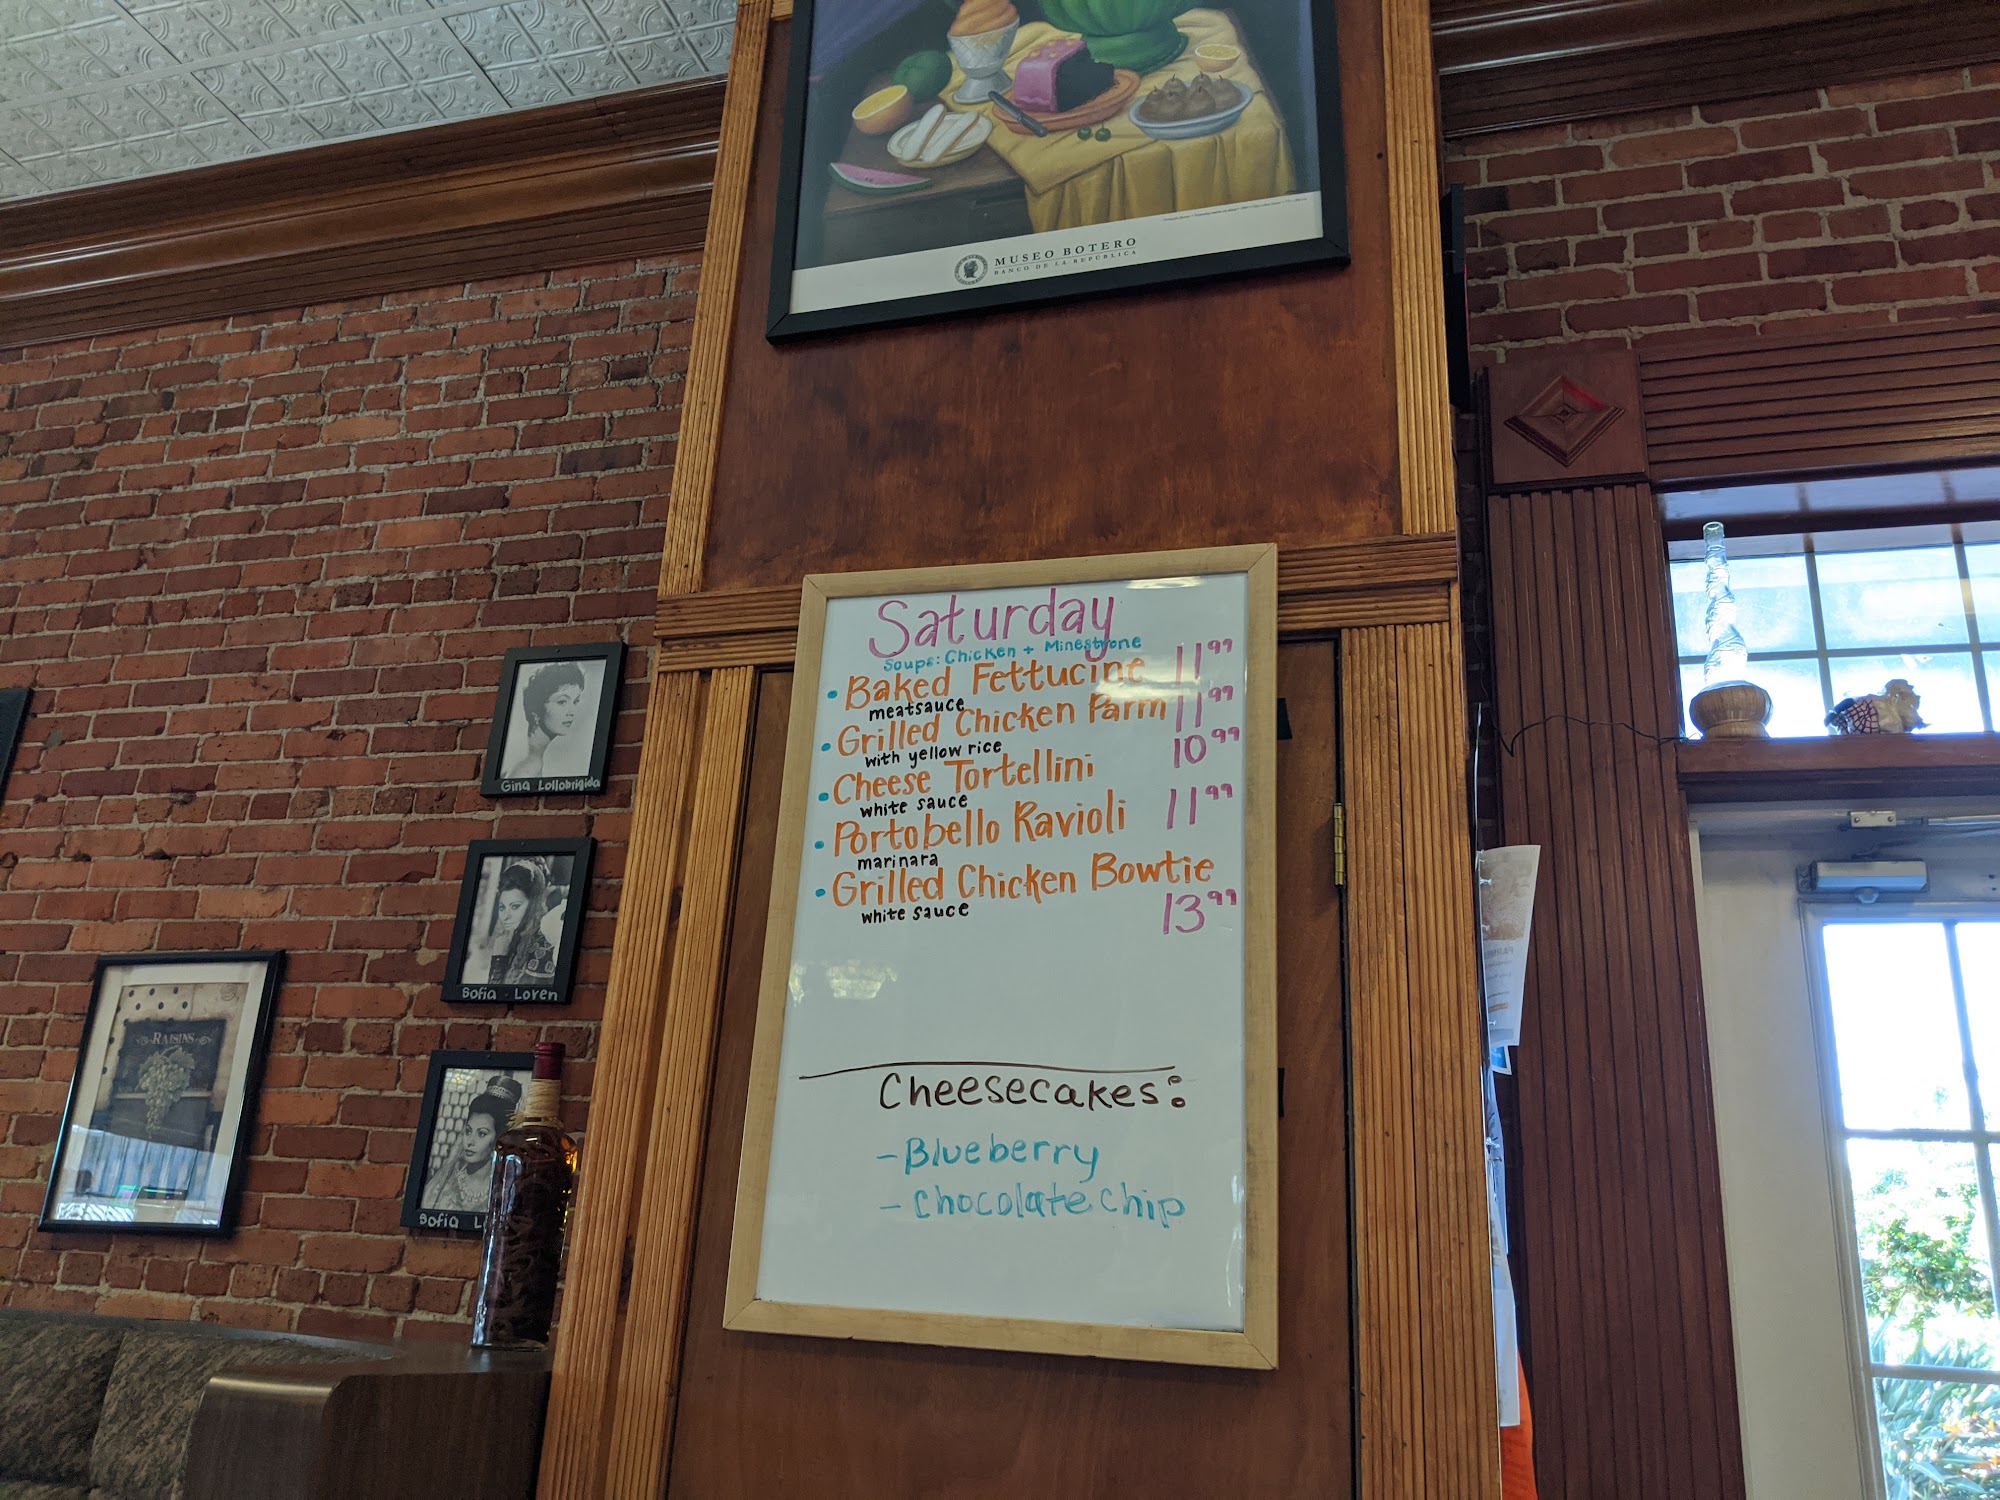 MUSEO BOTERO
BANCO DE LA REPÚBLICA
Saturday
Soups: Chicken + Minestrone
• Baked Fettucine 11 99
meatsauce
• Grilled Chicken Parm 11 99
with yellow rice
• Cheese Tortellini 10 99
white sauce
• Portobello Ravioli 11 99
marinara
• Grilled Chicken Bowtie
white sauce 13 99
Cheesecakes:
- Blueberry
- Chocolate chip
Gina Lollobrigida
Sofia Loren
RAISINS
Sofia L